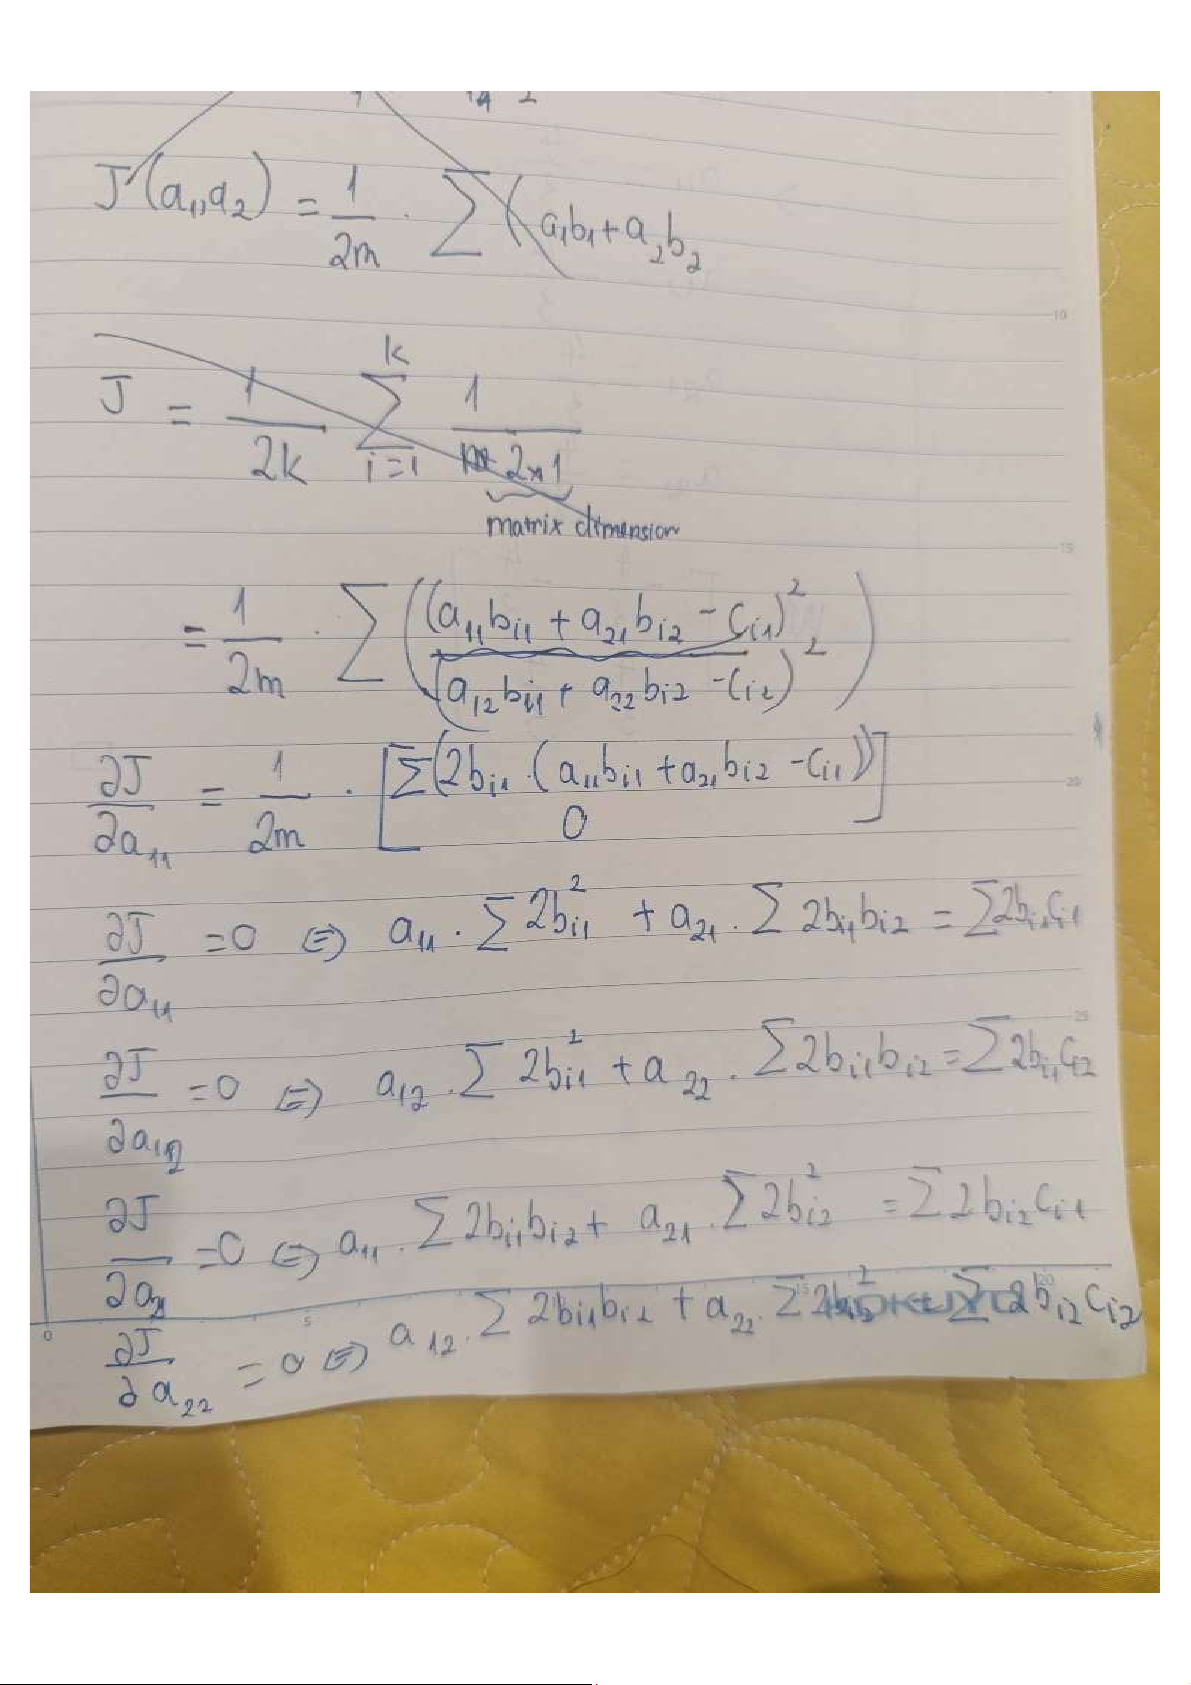 J(a₁,a₂) = 1/2m · Σ( a₁b₁ + a₂b₂
J = 1/2k Σ_{i=1}^{k} 1/2×1
matrix dimension
= 1/2m · Σ( (a₁₁b_{i1} + a₂₁b_{i2} - c_{i1})²
(a₁₂b_{i1} + a₂₂b_{i2} - c_{i2})² )
∂J/∂a₁₁ = 1/2m · [ Σ(2b_{i1} · (a₁₁b_{i1} + a₂₁b_{i2} - c_{i1}))
0 ]
∂J/∂a₁₁ = 0 ⇔ a₁₁ · Σ 2b_{i1}² + a₂₁ · Σ 2b_{i1}b_{i2} = Σ 2b_{i1}c_{i1}
∂J/∂a₁₂ = 0 ⇔ a₁₂ · Σ 2b_{i1}² + a₂₂ · Σ 2b_{i1}b_{i2} = Σ 2b_{i1}c_{i2}
∂J/∂a₂₁ = 0 ⇔ a₁₁ · Σ 2b_{i1}b_{i2} + a₂₁ · Σ 2b_{i2}² = Σ 2b_{i2}c_{i1}
∂J/∂a₂₂ = 0 ⇔ a₁₂ · Σ 2b_{i1}b_{i2} + a₂₂ · Σ 2b_{i2}² = Σ 2b_{i2}c_{i2}
10
15
20
25
0
5
15
20